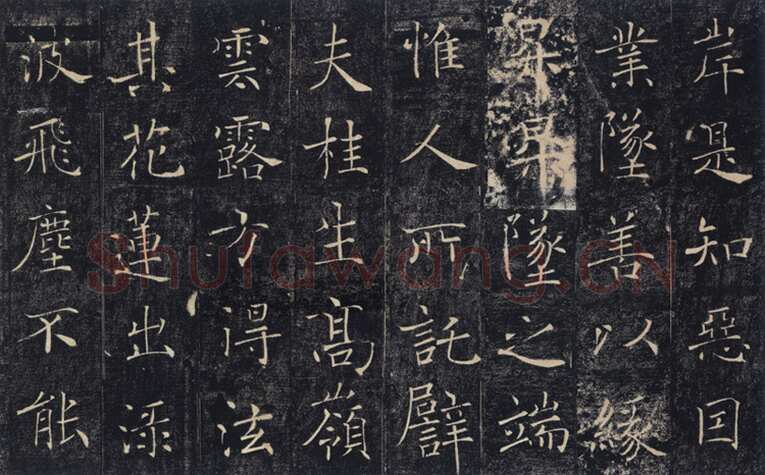 岸是知惡因
業墜善以緣
昇昇墜之端
惟人所託譬
夫桂生高嶺
雲露方得泫
其花蓮出淥
波飛塵不能
Shufawang.CN